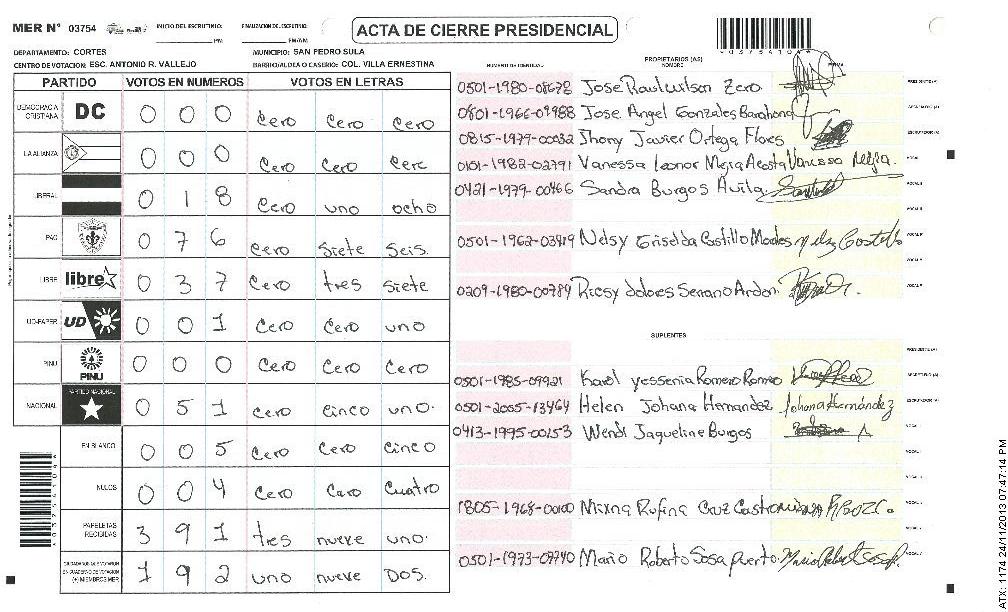 MER N° 03754 INICIO DEL ESCRUTINIO: FINALIZACION DEL ESCRUTINIO:
PM PM/AM
ACTA DE CIERRE PRESIDENCIAL
DEPARTAMENTO: CORTES MUNICIPIO: SAN PEDRO SULA
CENTRO DE VOTACION: ESC. ANTONIO R. VALLEJO BARRIO/ALDEA O CASERIO: COL. VILLA ERNESTINA
PARTIDO VOTOS EN NUMEROS VOTOS EN LETRAS
DEMOCRACIA CRISTIANA DC 0 0 0 Cero Cero Cero
LA ALIANZA 0 0 0 Cero Cero Cero
LIBERAL 0 1 8 Cero uno ocho
PAC 0 7 6 Cero Siete Seis.
LIBRE libre 0 3 7 Cero tres Siete
UD-FAPER UD 0 0 1 Cero Cero uno
PINU PINU 0 0 0 Cero Cero Cero
NACIONAL PARTIDO NACIONAL 0 5 1 Cero Cinco uno.
EN BLANCO 0 0 5 Cero Cero Cinco
NULOS 0 0 4 Cero Cero Cuatro
PAPELETAS RECIBIDAS 3 9 1 tres nueve uno.
CIUDADANOS QUE VOTARON EN CUADERNO DE VOTACION (+) MIEMBROS MER 1 9 2 uno nueve DOS.
PROPIETARIOS (AS)
NUMERO DE IDENTIDAD NOMBRE FIRMA
0501-1980-08678 Jose Raul Wilson Zero PRESIDENTE (A)
0801-1966-09988 Jose Angel Gonzales Barahona SECRETARIO (A)
0815-1979-00032 Jhony Javier Ortega Flores ESCRUTADOR (A)
0101-1982-02791 Vanessa Leonor Mejia Acosta Vanessa Mejia. VOCAL I
0421-1979-00466 Sandra Burgos Avila. VOCAL II
0501-1962-03419 Nelsy Griselda Castillo Morales Nelsy Castillo
0209-1980-00789 Ricsy dolores Serrano Ardon.
SUPLENTES
PRESIDENTE (A)
0501-1985-09921 Karol yessenia Romero Romero SECRETARIO (A)
0501-2055-13464 Helen Johana Hernandez Johana Hernández ESCRUTADOR (A)
0413-1995-00153 Wendi Jaqueline Burgos
1805-1968-00100 Mixna Rufina Cruz Castro
0501-1973-07740 Mario Roberto Sosa puerto.
ATX: 1174 24/11/2013 07:47:14 PM